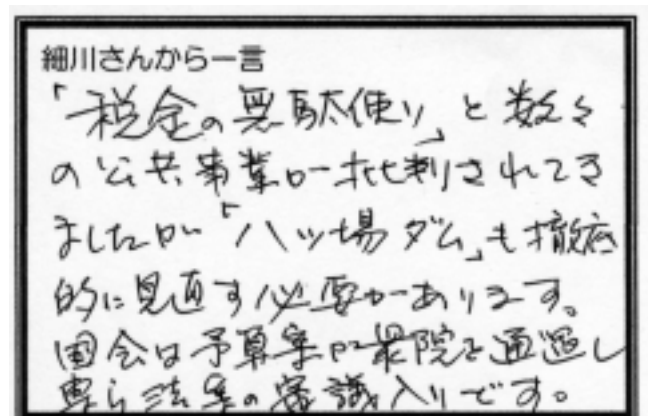 細川さんから一言
「税金の無駄使い」と数々
の公共事業が批判されてき
ましたが「八ッ場ダム」も徹底
的に見直す必要があります。
国会は予算案が衆院を通過し
専ら法案の審議入りです。